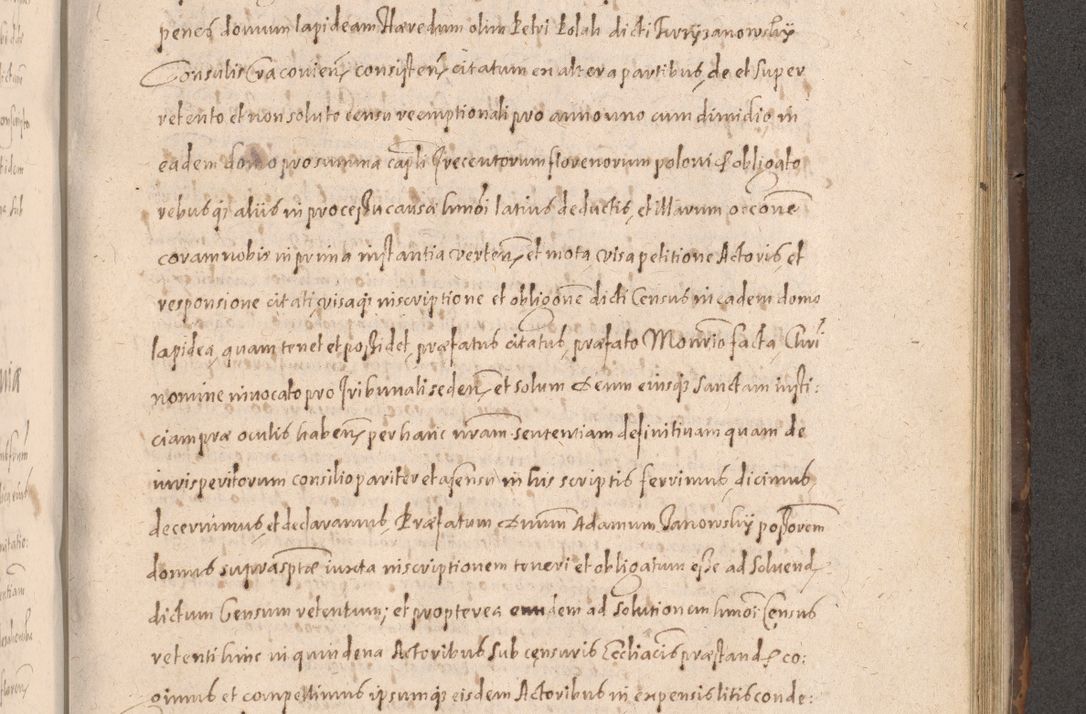 penes domum lapideam Hæredum olim Petri Polak dicti Furrÿzanowskÿ
Consulis Cracovien̄ consisten̄ citatum en altera partibus, de et super
retento et non soluto censu reemptionali pro anno uno cum dimidio in
eadem domo pro summa capli Trecentorum florenorum poloni & obligato
rebusq́ aliis in processu causæ hmoi latius deductis, et illarum occõne
coram nobis in prima instantia verten̄, et mota, visa petitione Actoris, et
responsione citati, visaq́ inscriptione et obligõne dicti Census in eadem domo
lapidea, quam tenet et possidet præfatus citatus, præfato Mon̄rio facta, Chri
nomine invocato pro Tribunali seden̄, et solum Deum eiusq́ Sanctam iusti:
ciam præ oculis haben̄, per hanc n̄ram sententiam definitivam quam de
iurisperitorum consilio pariter et assensu in his scriptis ferrimus, dicimus,
decernimus, et declaramus, Præfatum Dnum Adamum Janowskÿ possorem
domus suprasptæ iuxta inscriptionem teneri et obligatum esse ad solvend̄
dictum Censum retentum; et propterea eundem ad solutionem hmoi Census
retenti hinc in quindena Actoribus sub censuris Eccliacis præstand̄, co:
gimus et compellimus ipsumq́ eisdem Actoribus in expensis litis conde: